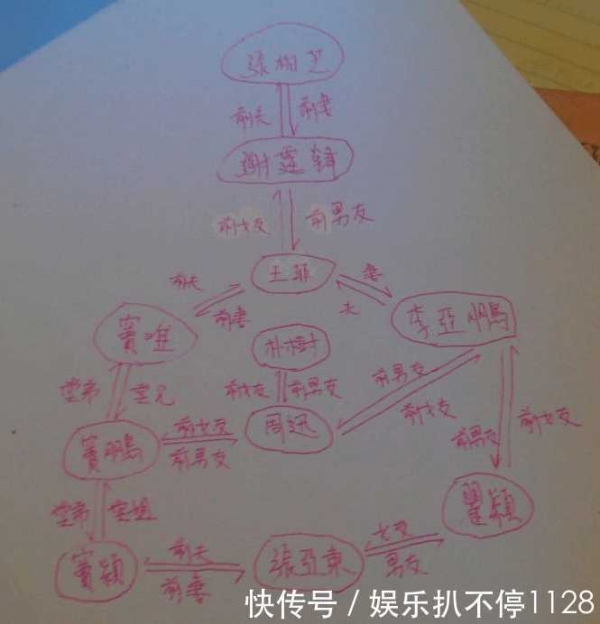 张栢芝
前夫 前妻
謝霆鋒
前女友 前男友
王菲
前夫 妻
前妻 夫
竇唯 李亞鵬
朴樹
堂弟 堂兄 前女友 前男友 前男友
前女友 前女友
竇鵬 前女友 周迅
前男友 前男友
堂弟 堂姐 瞿穎
竇穎 前夫 張亞東 女友
前妻 男友
快传号 / 娱乐扒不停1128